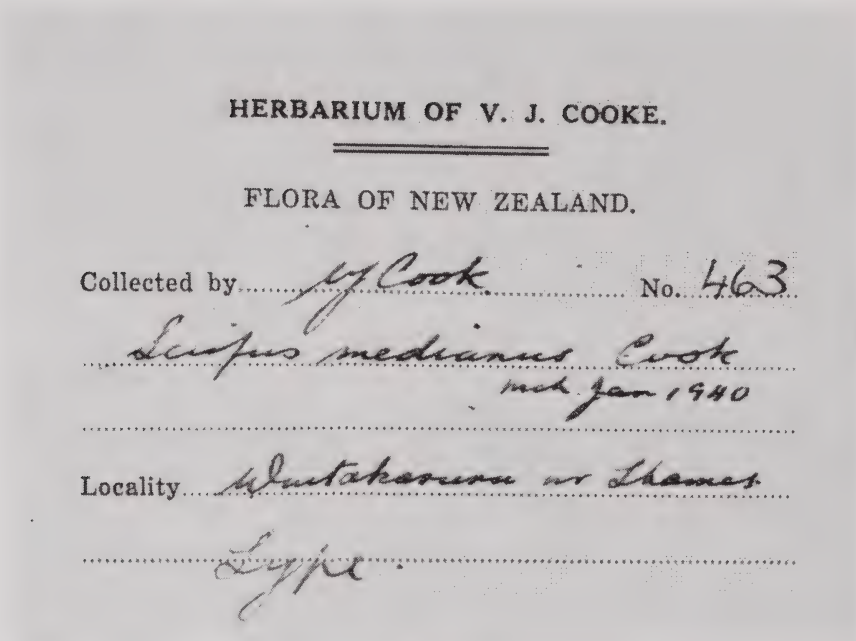 HERBARIUM OF V. J. COOKE.
FLORA OF NEW ZEALAND.
Collected by VJ Cook. No. 463
Scirpus medianus Cook
Jan 1940
Locality Waitakaruru nr Thames.
Type.